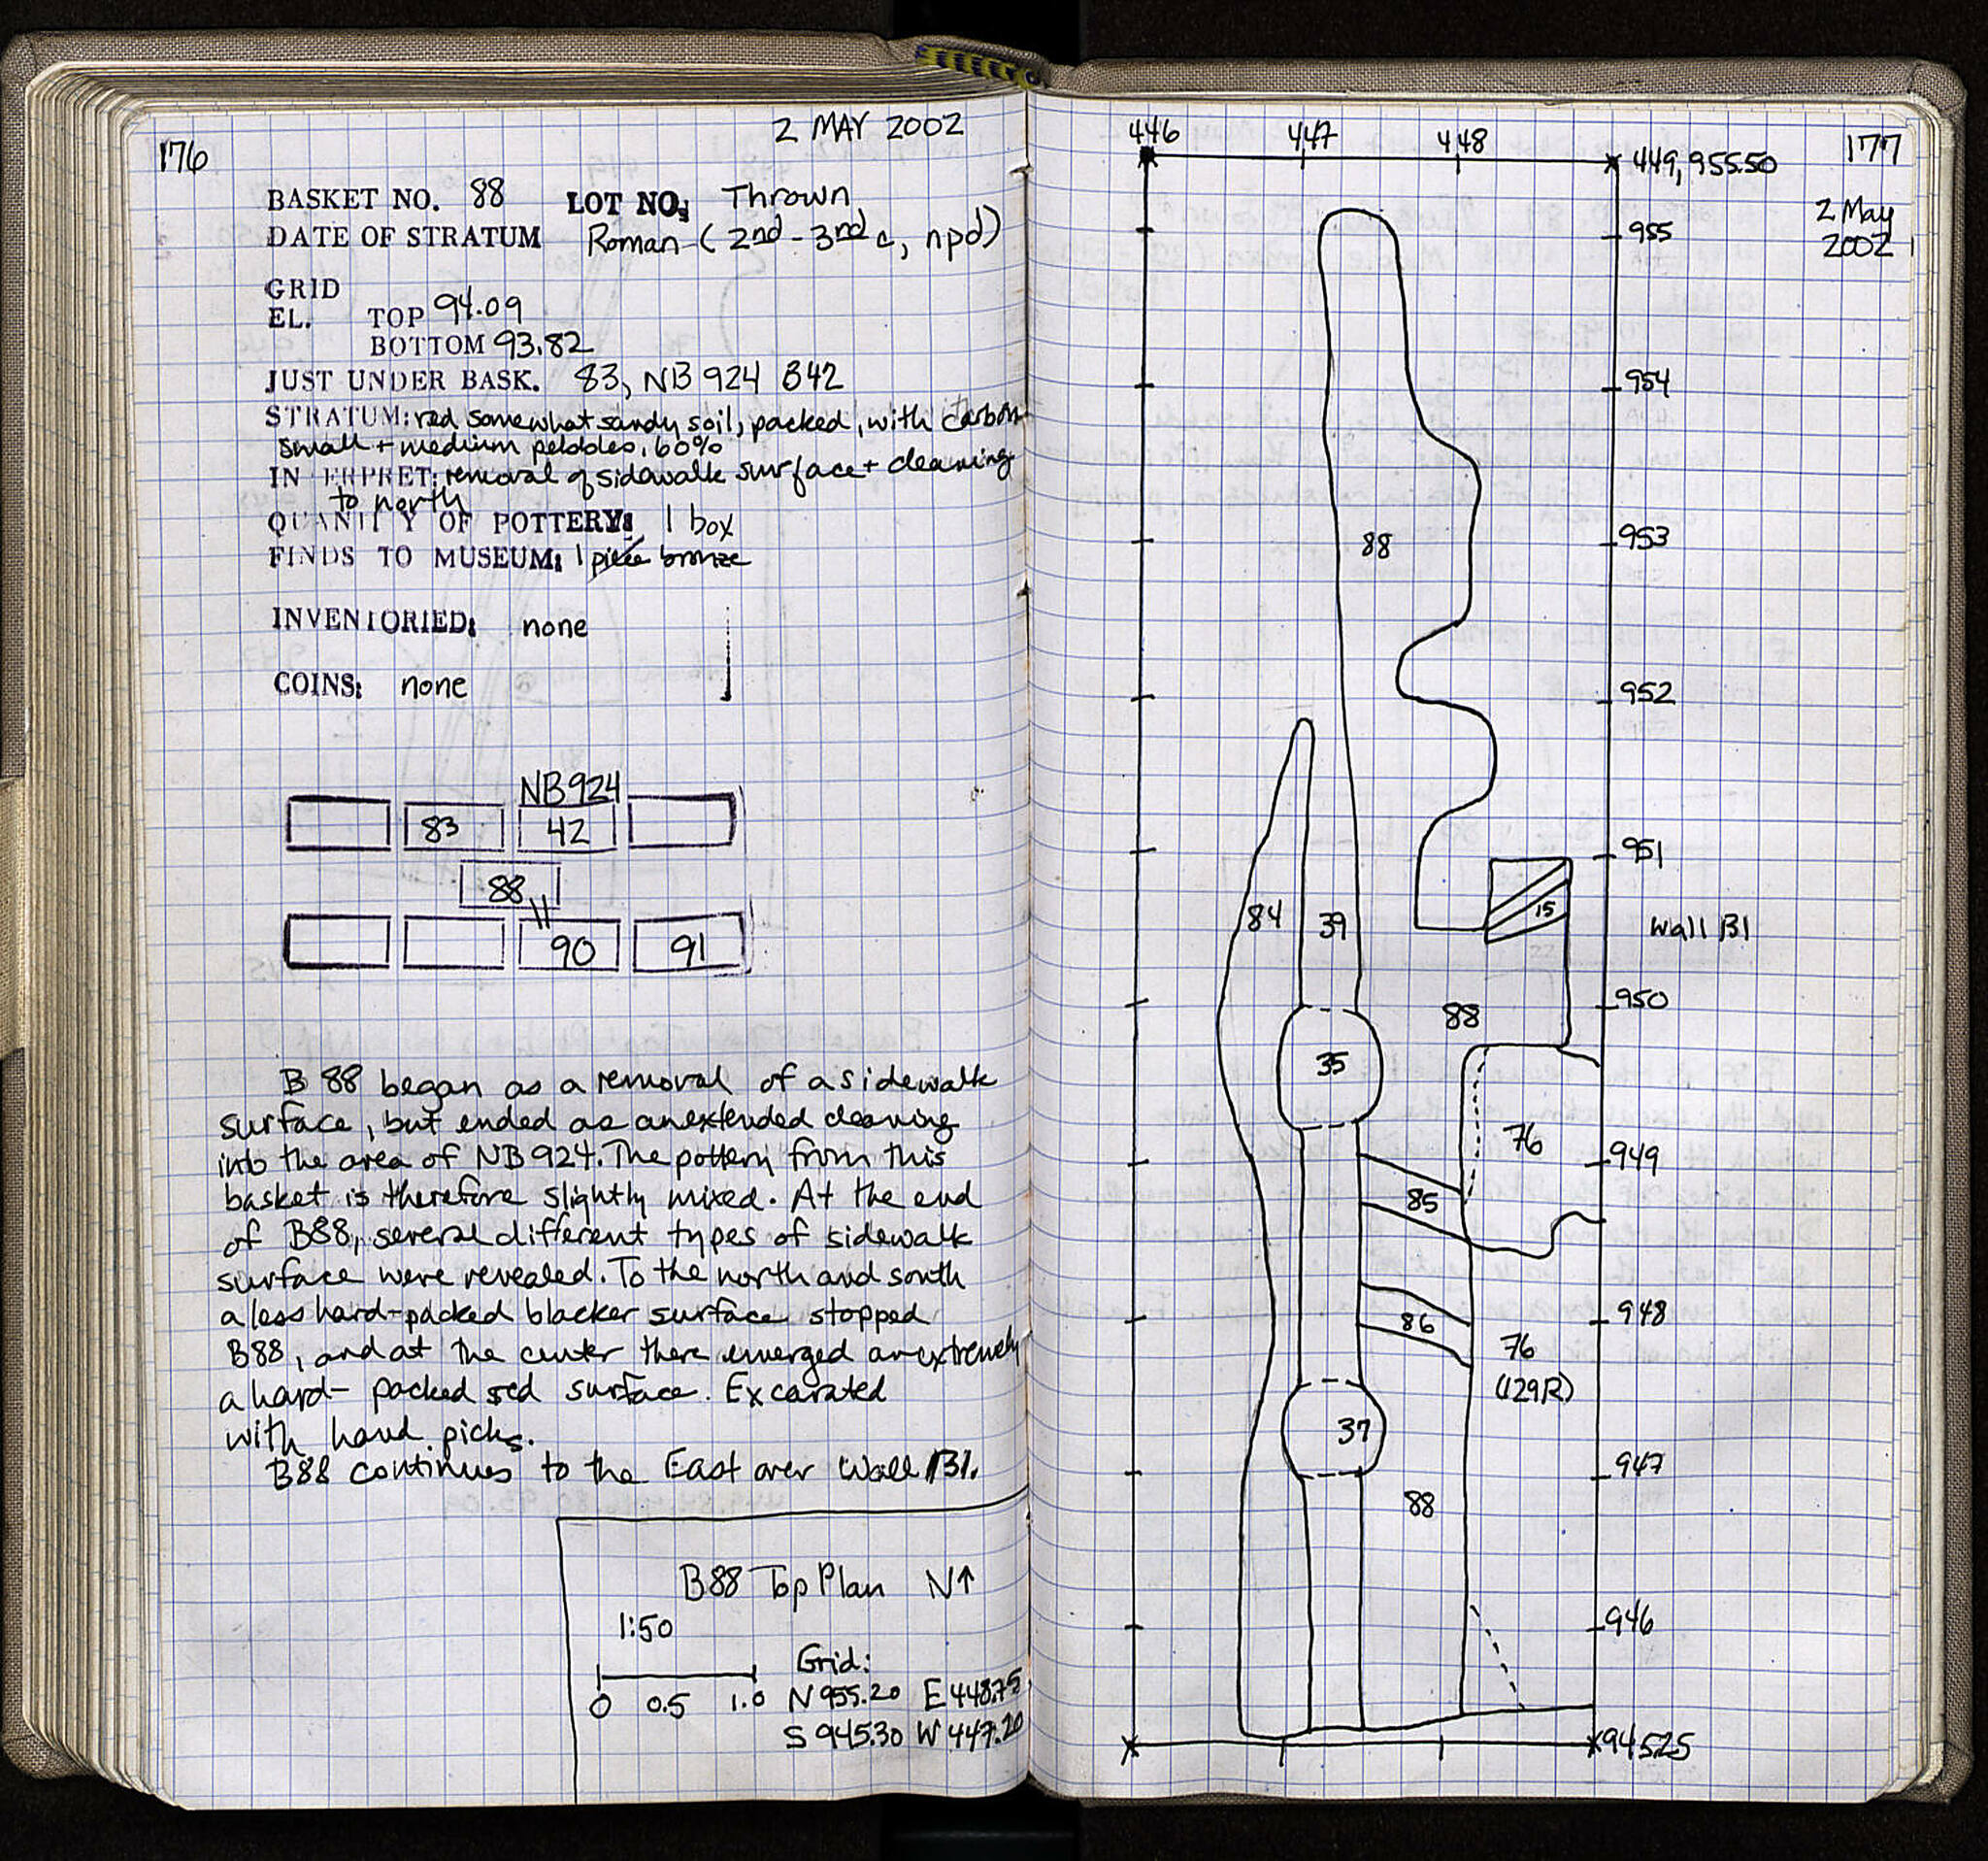 176
2 MAY 2002
BASKET NO. 88 LOT NO: Thrown
DATE OF STRATUM Roman (2nd - 3rd c, npd)
GRID
EL. TOP 94.09
BOTTOM 93.82
JUST UNDER BASK. 83, NB 924 B42
STRATUM: red somewhat sandy soil, packed, with carbon
small + medium pebbles, 60%
INTERPRET: removal of sidewalk surface + cleaning
to north
QUANTITY OF POTTERY: 1 box
FINDS TO MUSEUM: 1 piece bronze
INVENTORIED: none
COINS: none
NB924
83 42
88
90 91
B 88 began as a removal of a sidewalk
surface, but ended as an extended cleaning
into the area of NB 924. The pottery from this
basket is therefore slightly mixed. At the end
of B88, several different types of sidewalk
surface were revealed. To the north and south
a less hard-packed blacker surface stopped
B88, and at the center there emerged an extremely
a hard-packed red surface. Excavated
with hand picks.
B88 continues to the East over Wall 131.
B88 Top Plan N↑
1:50
0 0.5 1.0
Grid:
N 955.20 E 448.75
S 945.30 W 447.20
446 447 448 449, 955.50
177
2 May
2002
955
954
953
88
952
951
15
84 39
Wall 131
950
88
35
76
949
85
948
86
76
(129R)
37
947
88
946
945.25